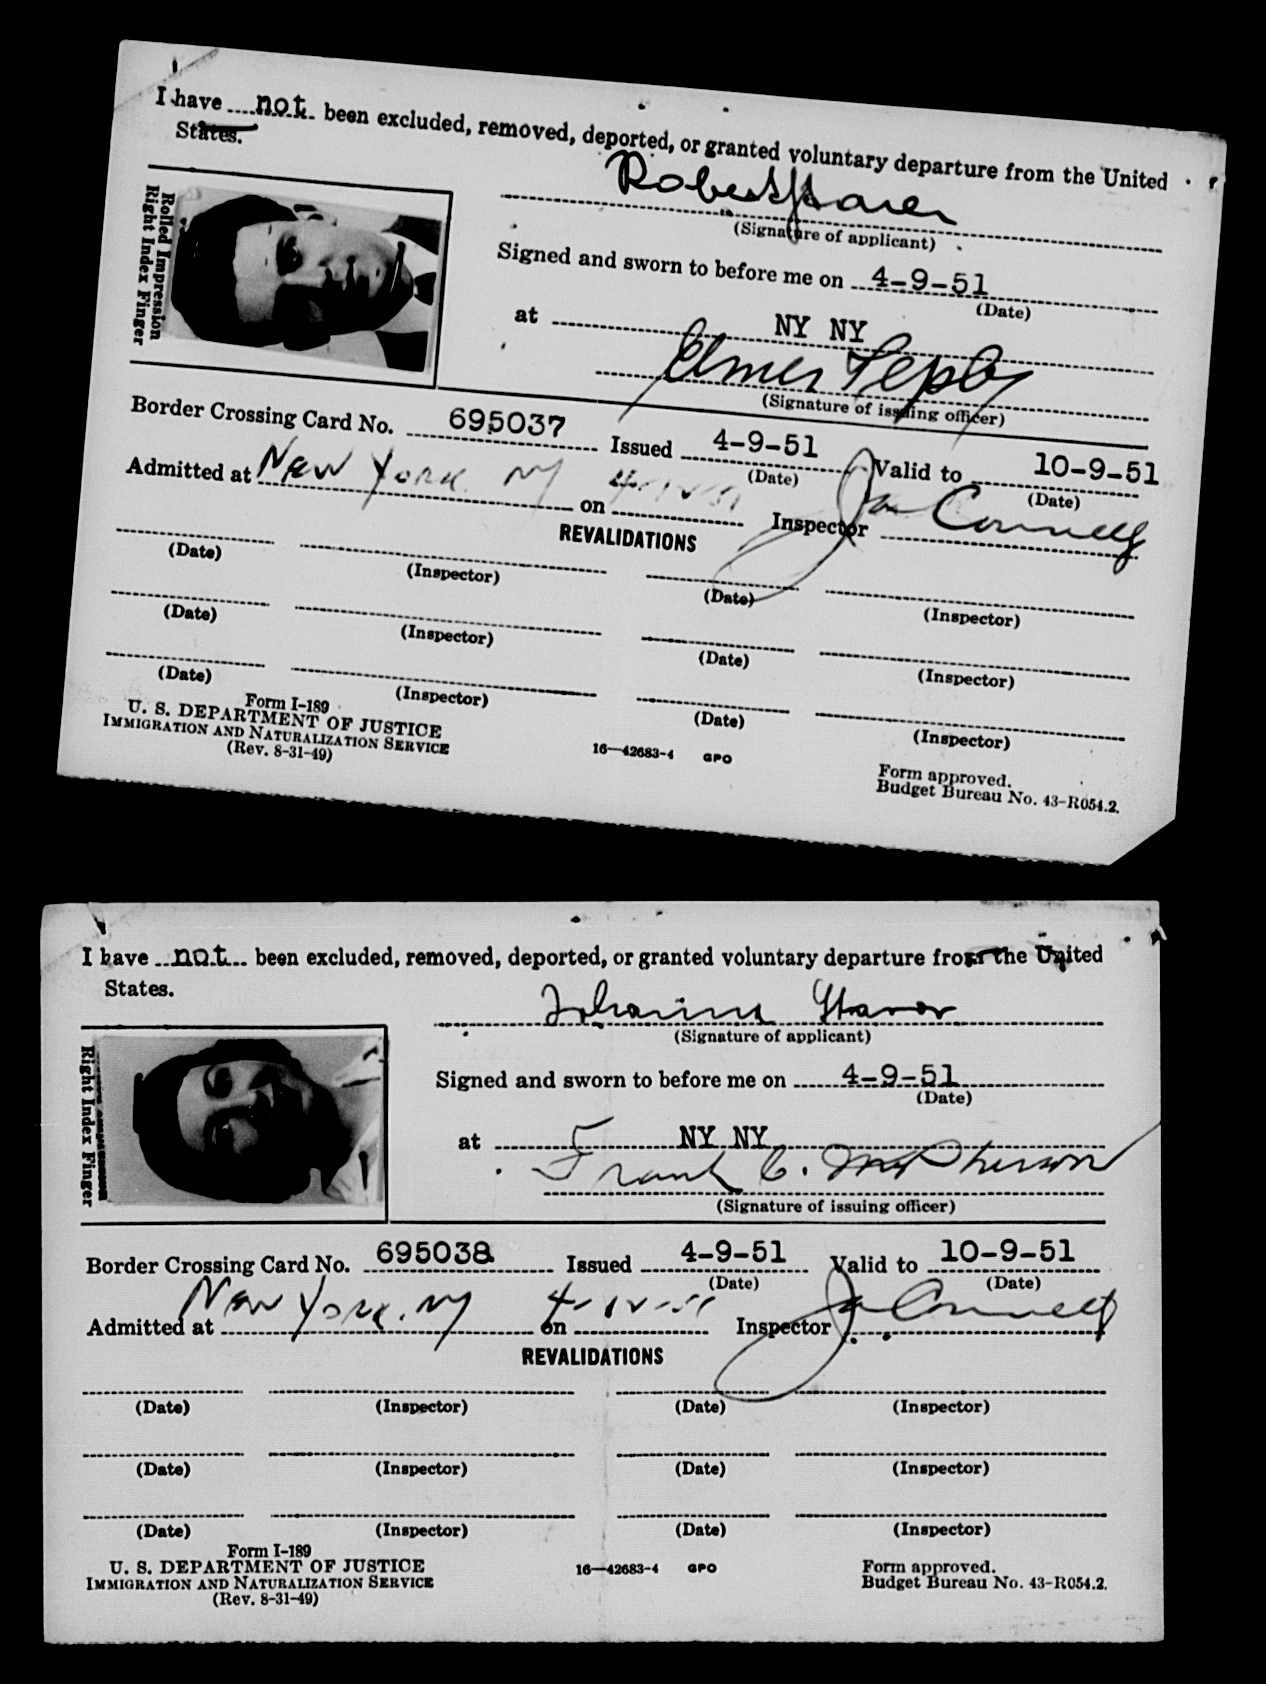 I have not been excluded, removed, deported, or granted voluntary departure from the United
States.
Rolled Impression
Right Index Finger
Robert
(Signature of applicant)
Signed and sworn to before me on 4-9-51
(Date)
at NY NY
Elmer
(Signature of issuing officer)
Border Crossing Card No. 695037 Issued 4-9-51 Valid to 10-9-51
(Date) (Date)
Admitted at New York NY on Inspector
REVALIDATIONS
(Date) (Inspector) (Date) (Inspector)
(Date) (Inspector) (Date) (Inspector)
(Date) (Inspector) (Date) (Inspector)
Form I-189
U. S. DEPARTMENT OF JUSTICE
IMMIGRATION AND NATURALIZATION SERVICE
(Rev. 8-31-49)
16—42683-4 GPO
Form approved.
Budget Bureau No. 43-R054.2.
I have not been excluded, removed, deported, or granted voluntary departure from the United
States.
Right Index Finger
(Signature of applicant)
Signed and sworn to before me on 4-9-51
(Date)
at NY NY
Frank C. McPherson
(Signature of issuing officer)
Border Crossing Card No. 695038 Issued 4-9-51 Valid to 10-9-51
(Date) (Date)
Admitted at New York. NY on Inspector
REVALIDATIONS
(Date) (Inspector) (Date) (Inspector)
(Date) (Inspector) (Date) (Inspector)
(Date) (Inspector) (Date) (Inspector)
Form I-189
U. S. DEPARTMENT OF JUSTICE
IMMIGRATION AND NATURALIZATION SERVICE
(Rev. 8-31-49)
16—42683-4 GPO
Form approved.
Budget Bureau No. 43-R054.2.